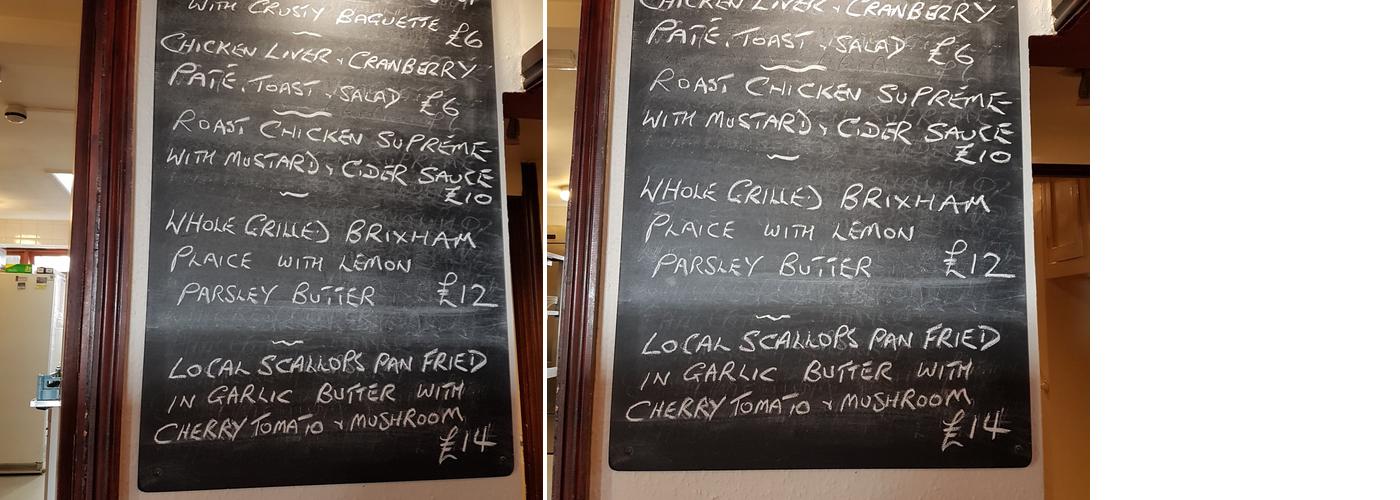 WITH CRUSTY BAGUETTE £6
CHICKEN LIVER & CRANBERRY
PATÉ, TOAST & SALAD £6
ROAST CHICKEN SUPRÉME
WITH MUSTARD & CIDER SAUCE
£10
WHOLE GRILLED BRIXHAM
PLAICE WITH LEMON
PARSLEY BUTTER £12
LOCAL SCALLOPS PAN FRIED
IN GARLIC BUTTER WITH
CHERRY TOMATO & MUSHROOM
£14
CHICKEN LIVER & CRANBERRY
PATÉ, TOAST & SALAD £6
ROAST CHICKEN SUPRÉME
WITH MUSTARD & CIDER SAUCE
£10
WHOLE GRILLED BRIXHAM
PLAICE WITH LEMON
PARSLEY BUTTER £12
LOCAL SCALLOPS PAN FRIED
IN GARLIC BUTTER WITH
CHERRY TOMATO & MUSHROOM
£14